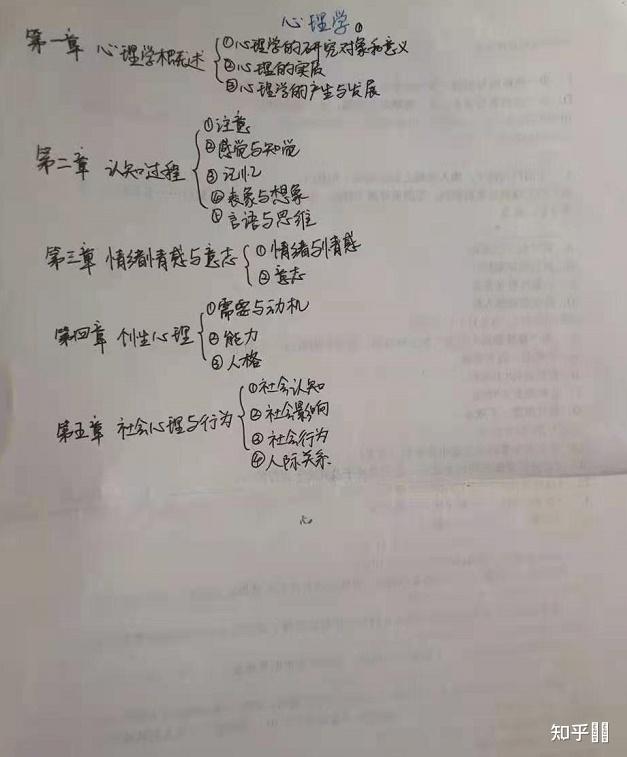 心理学①
第一章 心理学概述
①心理学的研究对象和意义
②心理的实质
③心理学的产生与发展
第二章 认知过程
①注意
②感觉与知觉
③记忆
④表象与想象
⑤言语与思维
第三章 情绪情感与意志
①情绪与情感
②意志
第四章 个性心理
①需要与动机
②能力
③人格
第五章 社会心理与行为
①社会认知
②社会影响
③社会行为
④人际关系
心
知乎